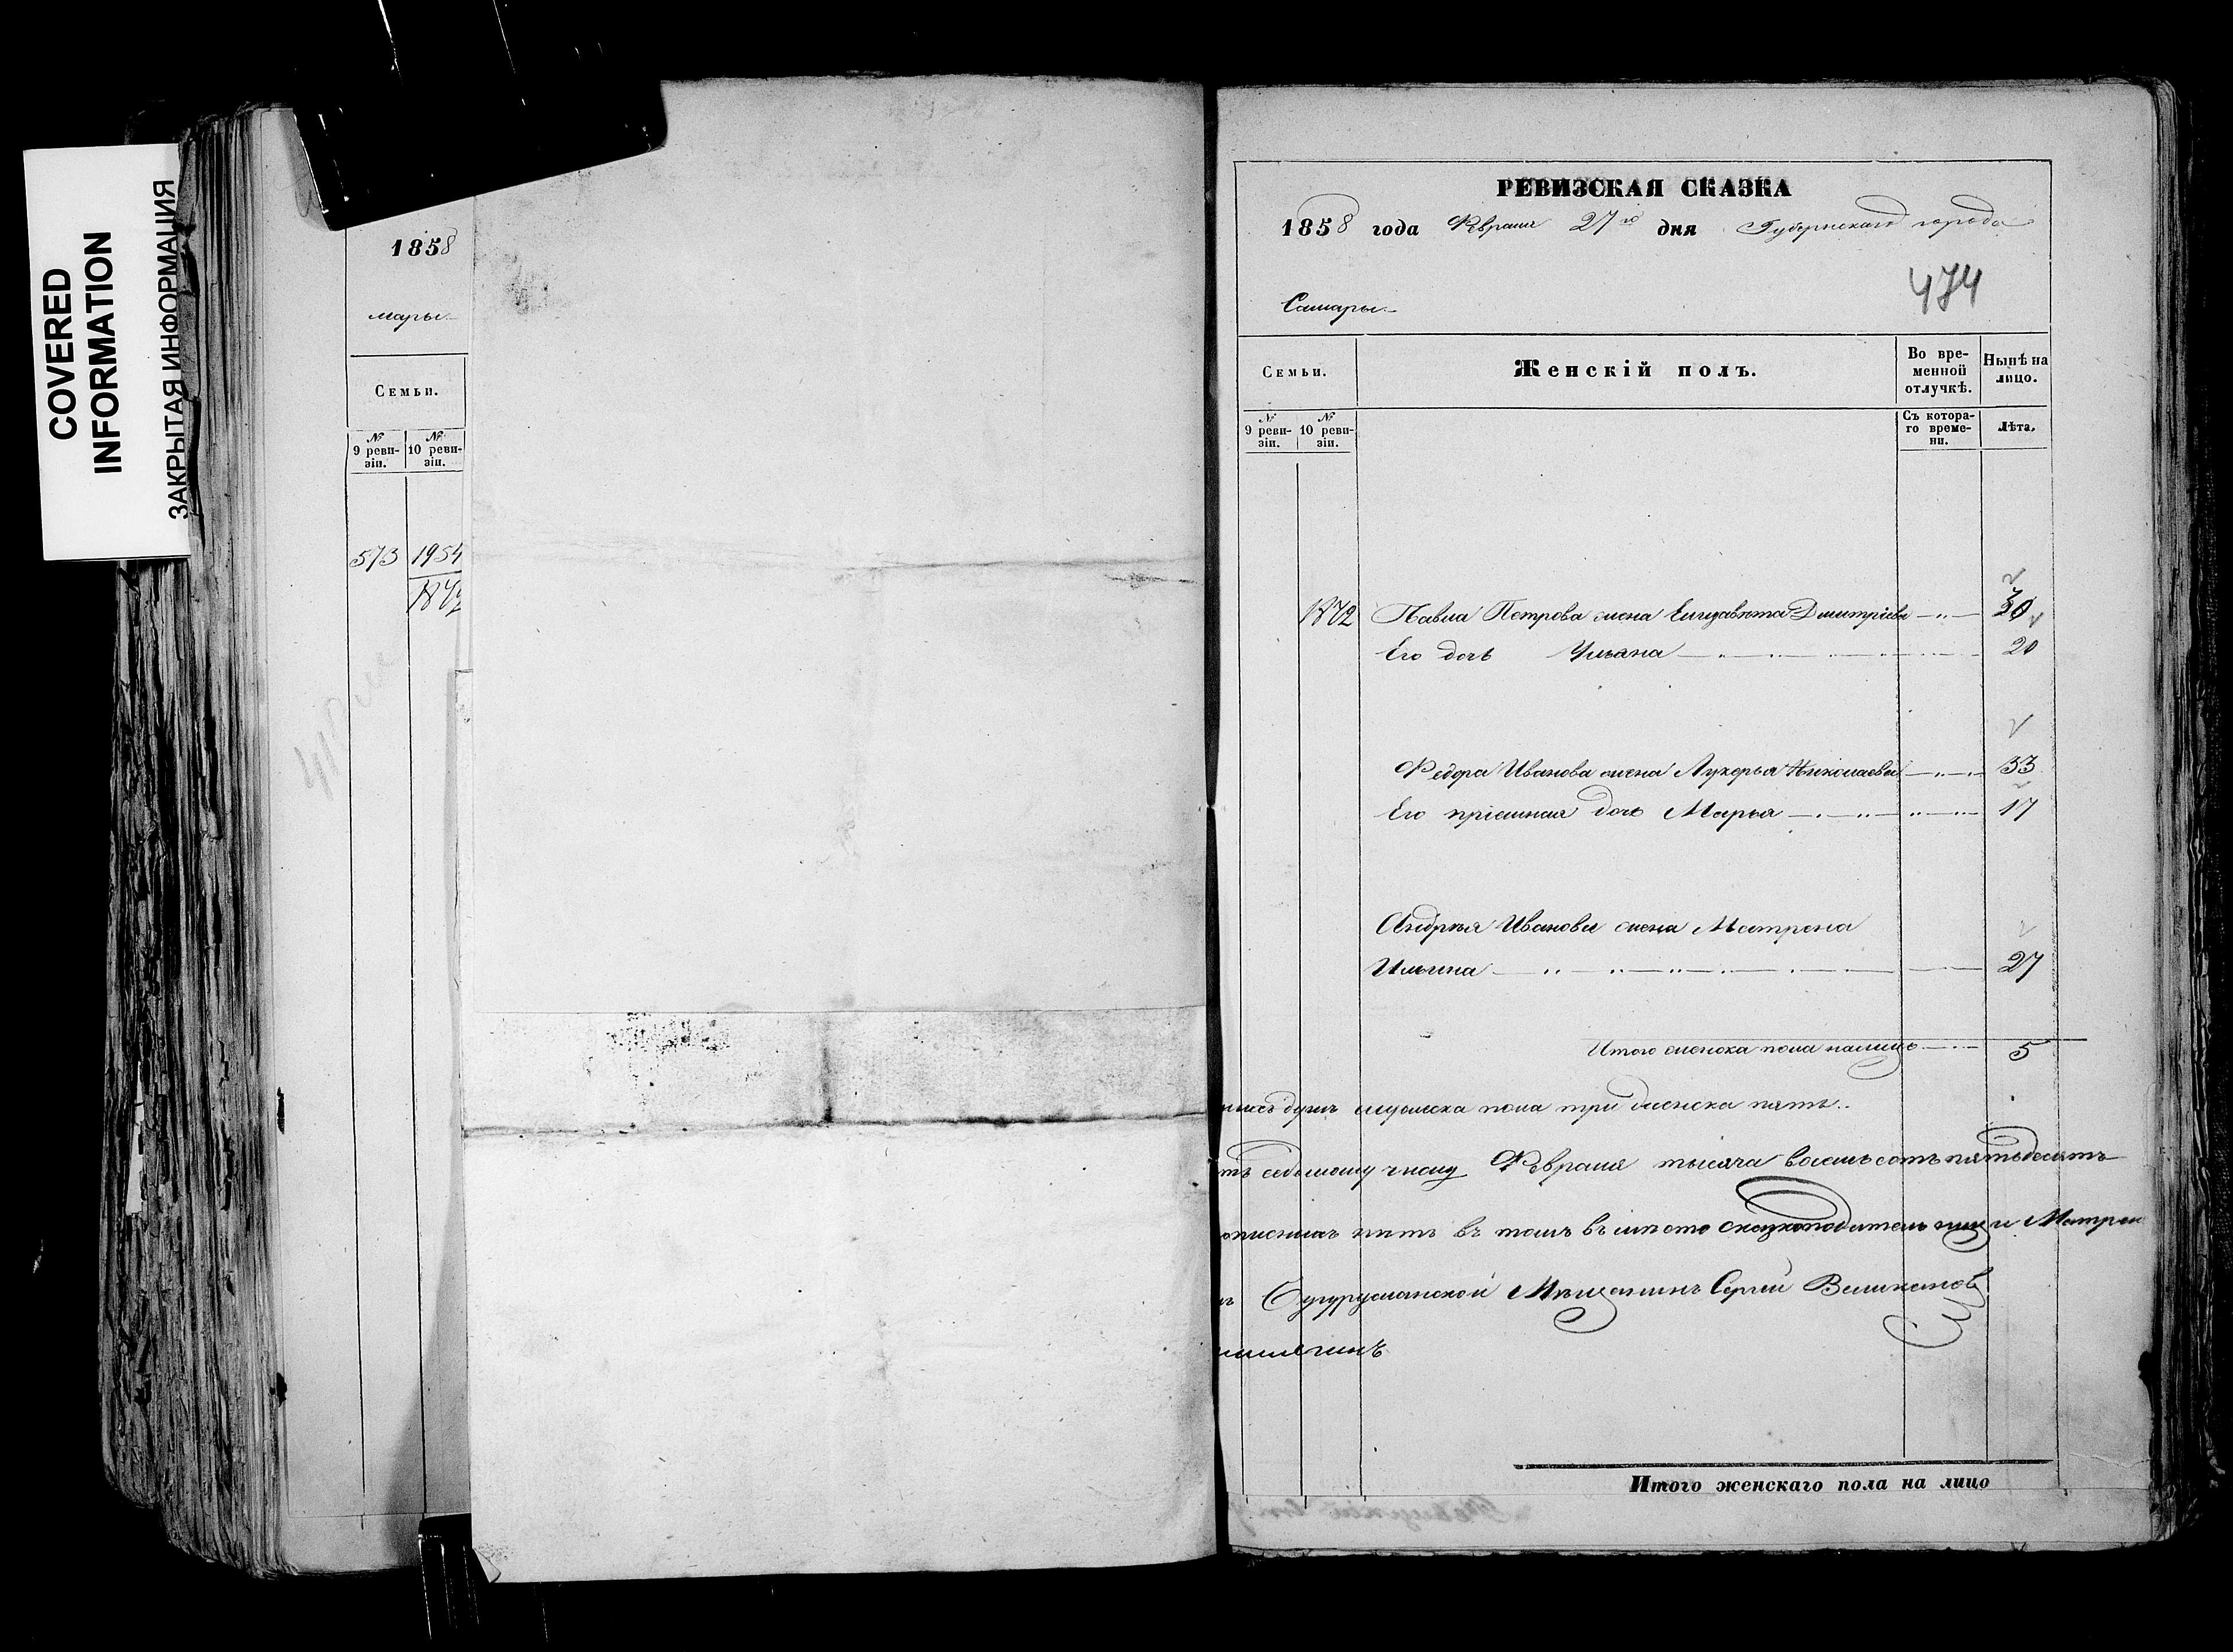 COVERED
INFORMATION
ЗАКРЫТАЯ ИНФОРМАЦИЯ
1858
мары
Семьи.
№ 9 ревизіи.
№ 10 ревизіи.
573 1954
РЕВИЗСКАЯ СКАЗКА
1858 года Февраля 27го дня Губернскаго города
474
Самары
Семьи.
Женскій полъ.
Во временной отлучкѣ.
Нынѣ на лицо.
№ 9 ревизіи.
№ 10 ревизіи.
Съ котораго времени.
Лѣта.
1872 Павла Петрова жена Елизавѣта Дмитріева
Его дочь Ульяна 20
Федора Иванова жена Лукерья Николаева 33
Его пріемная дочь Марья 17
Андрѣя Иванова жена Матрена
Ильина 27
Итого женска пола налицо 5
душъ мужеска пола три женска пять
седьмому числу Февраля тысяча восемьсотъ пятьдесятъ
пять въ томъ вмѣсто сказкоподательницы Матрен
Бугурусланской Мѣщанинъ Сергѣй Великанов
Итого женскаго пола на лицо